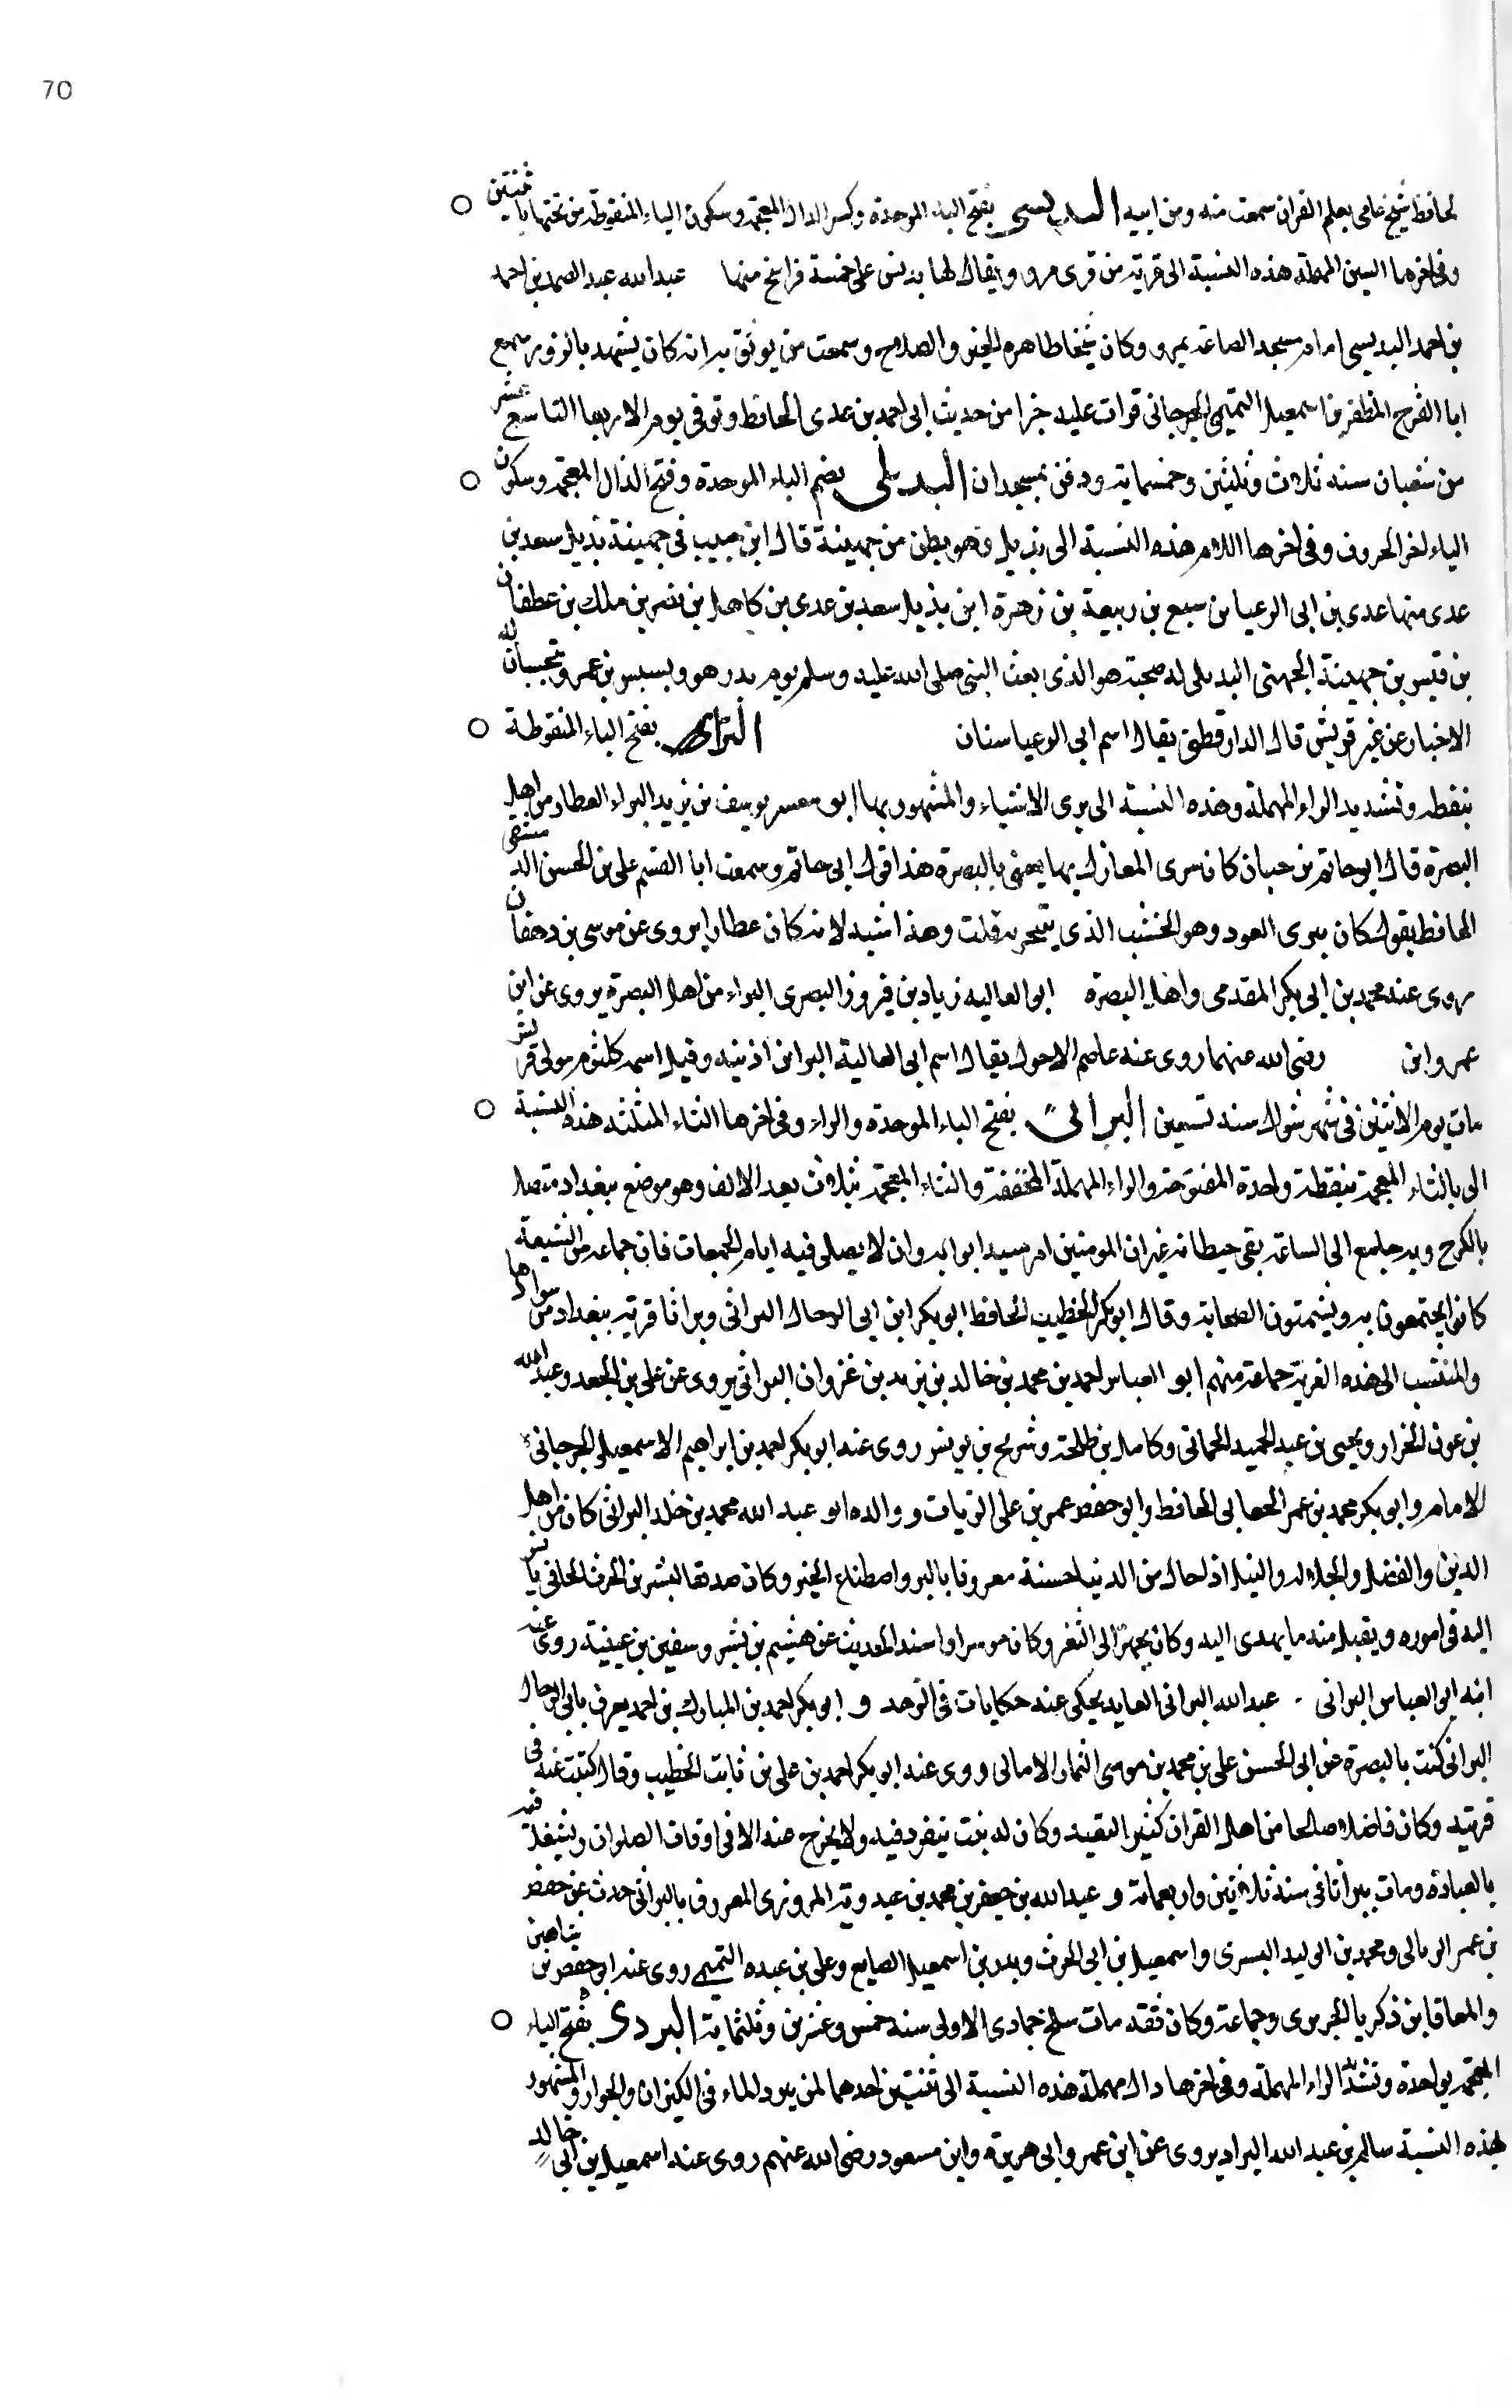 70
الحافظ شيخ عامى يعلم القران سمعت منه ومن ابيه البديسى بفتح الباء الموحدة وكسر الدال المعجمه وسكون الياء المنقوطه من تحتها باثنتين
وفى اخرها السين المهملة هذه النسبة الى قرية من قرى مرو ويقال لها بديس على خمسة فراسخ منها عبد الله عبد الصمد بن احمد
بن احمد البديسى امام مسجد الصاغه بمرو وكان شيخا ظاهره الخير والصلاح وسمعت من يوثق به انه كان يشهد بالزور سمع
ابا الفرج المظفر بن اسمعيل التميمى الجرجانى قرات عليه جزا من حديث ابى احمد بن عدى الحافظ وتوفى يوم الاربعا التاسع عشر
من شعبان سنه ثلاث وثلثين وخمسماية ودفن بسجدان البذيلى بضم الباء الموحدة وفتح الذال المعجمه وسكون
الياء اخر الحروف وفى اخرها اللام هذه النسبة الى بذيل وهو بطن من جهينة قال ابن حبيب فى جهينة بذيل سعد بن
عدى منها عدى بن ابى الرعبا بن سبع بن ربيعة بن زهرة ابن بذيل سعد بن عدى بن كاهل بن نصر بن ملك بن عطفان
بن قيس بن جهينة الجهنى البديلى له صحبة هو الذى بعث النبى صلى الله عليه وسلم يوم بدر هو وبسبس بن عمرو يتحسسان له
الاخبار عن عير قريش قال الدارقطنى يقال اسم ابى الرعبا سنان البراء بفتح الباء المنقوطة
بنقطه وتشديد الراء المهملة وهذه النسبة الى برى الاشياء والمشهور بها ابو معسر يوسف بن يزيد البراء العطار من اهل
البصرة قال ابو حاتم بن حبان كان يبرى المغازل بها يعنى بالبصرة هذا قول ابى حاتم وسمعت ابا القسم على بن الحسن الدمشقى
الحافظ يقول كان يبرى العود وهو الخشب الذى يتبخر به قلت وهذا اشبه لانه كان عطارا يروى عن موسى بن دهقان
روى عنه محمد بن ابى بكر المقدمى واهل البصرة ابو العاليه زياد بن فيروز البصرى البراء من اهل البصرة يروى عن ابن
عمر وابن رضى الله عنهما روى عنه عاصم الاحول يقال اسم ابى العالية البراء ابن اذينه وقيل اسمه كلثوم مولى قريش
مات يوم الاثنين فى شهر شوال سنه تسعين البراثى بفتح الباء الموحدة والراء وفى اخرها الثاء المثلثه هذه النسبة
الى براثا بالباء المعجمة بنقطة واحدة المفتوحة والراء المهملة المخففة والثاء المعجمة بثلاث بعد الالف وهو موضع ببغداد متصل
بالكرخ وبه جامع الى الساعة بقى حيطانه غير ان المومنين امر بسد ابوابه وان لا يصلى فيه ايام الجمعات فان جماعة من الشيعة
كانوا يجتمعون به ويشتمون الصحابة وقال ابو بكر الخطيب الحافظ ابو بكر ابن ابى الرجال البراثى وبراثا قرية ببغداد من سوادها
والمنتسب الى هذه القرية جماعة منهم ابو العباس احمد بن محمد بن خالد بن يزيد بن غزوان البراثى يروى عن على بن الجعد وعبد الله
بن عون الخزاز ويحيى بن عبد الحميد الحمانى وكامل بن طلحة وشريح بن يونس روى عنه ابو بكر احمد بن ابراهيم الاسمعيلى الجرجانى
الامام وابو بكر محمد بن عمر الجعابى الحافظ وابو حفص عمر بن على الزيات ووالده ابو عبد الله محمد بن خلد البراثى كان من اهل
الدين والفضل والجلاله والنبل اذ احال من الدنيا حسنة معروفا بالبر واصطناع الخير وكان صديقا لبشر بن الحرث الحافى يانس
اليه فى اموره ويقبل منه ما يهدى اليه وكان يجهز الى الثغر وكان موسرا واسند الحديث عن هشيم بن بشير وسفين بن عيينة روى عنه
ابنه ابو العباس البراثى عبد الله البراثى العابد يحكى عنه حكايات فى الزهد و ابو بكر احمد بن المبارك بن احمد يعرف بابى الرجال
البراثى كتب بالبصرة عن ابى الحسن على بن محمد بن موسى التمار الامالى وروى عنه ابو بكر احمد بن على بن ثابت الخطيب وقال كتبت عنه فى
قريته وكان فاضلا صالحا من اهل القران كثير التعبد وكان له بيت ينفرد فيه ولا يخرج منه الا فى اوقات الصلوات ويشتغل فيه
بالعبادة ومات ببراثا فى سنة ثلاثين واربعماية و عبد الله بن جعفر بن محمد بن عبدويه المروزى المعروف بالبراثى حدث عن حفص
بن عمر الربالى ومحمد بن الوليد البسرى واسمعيل بن ابى الحرث وبدر بن اسمعيل الصايغ وعلى بن عبده التميمى روى عنه ابو حفص بن شاهين
والمعافا بن زكريا الجريرى وجماعة وكان ثقة مات سلخ جمادى الاولى سنة خمس وعشرين وثلثماية البردى بفتح الباء
المعجمة بواحدة وتشديد الراء المهملة وفى اخرها دال مهملة هذه النسبة الى شيئين احدهما لمن يبرد الماء فى الكيزان والجرار والمشهور
بهذه النسبة سالم بن عبد الله البراد يروى عن ابن عمر وابى هريرة وابن مسعود رضى الله عنهم روى عنه اسمعيل بن ابى خالد